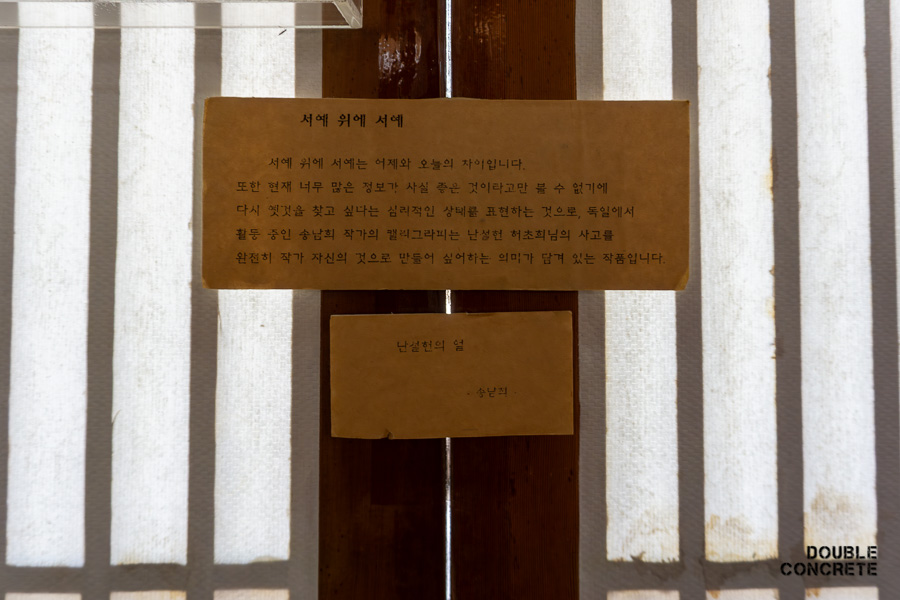 서예 위에 서예
서예 위에 서예는 어제와 오늘의 차이입니다.
또한 현재 너무 많은 정보가 사실 좋은 것이라고만 볼 수 없기에
다시 옛것을 찾고 싶다는 심리적인 상태를 표현하는 것으로, 독일에서
활동 중인 송남희 작가의 캘리그라피는 난설헌 허초희님의 사고를
완전히 작가 자신의 것으로 만들어 싶어하는 의미가 담겨 있는 작품입니다.
난설헌의 얼
- 송남희 -
DOUBLE
CONCRETE